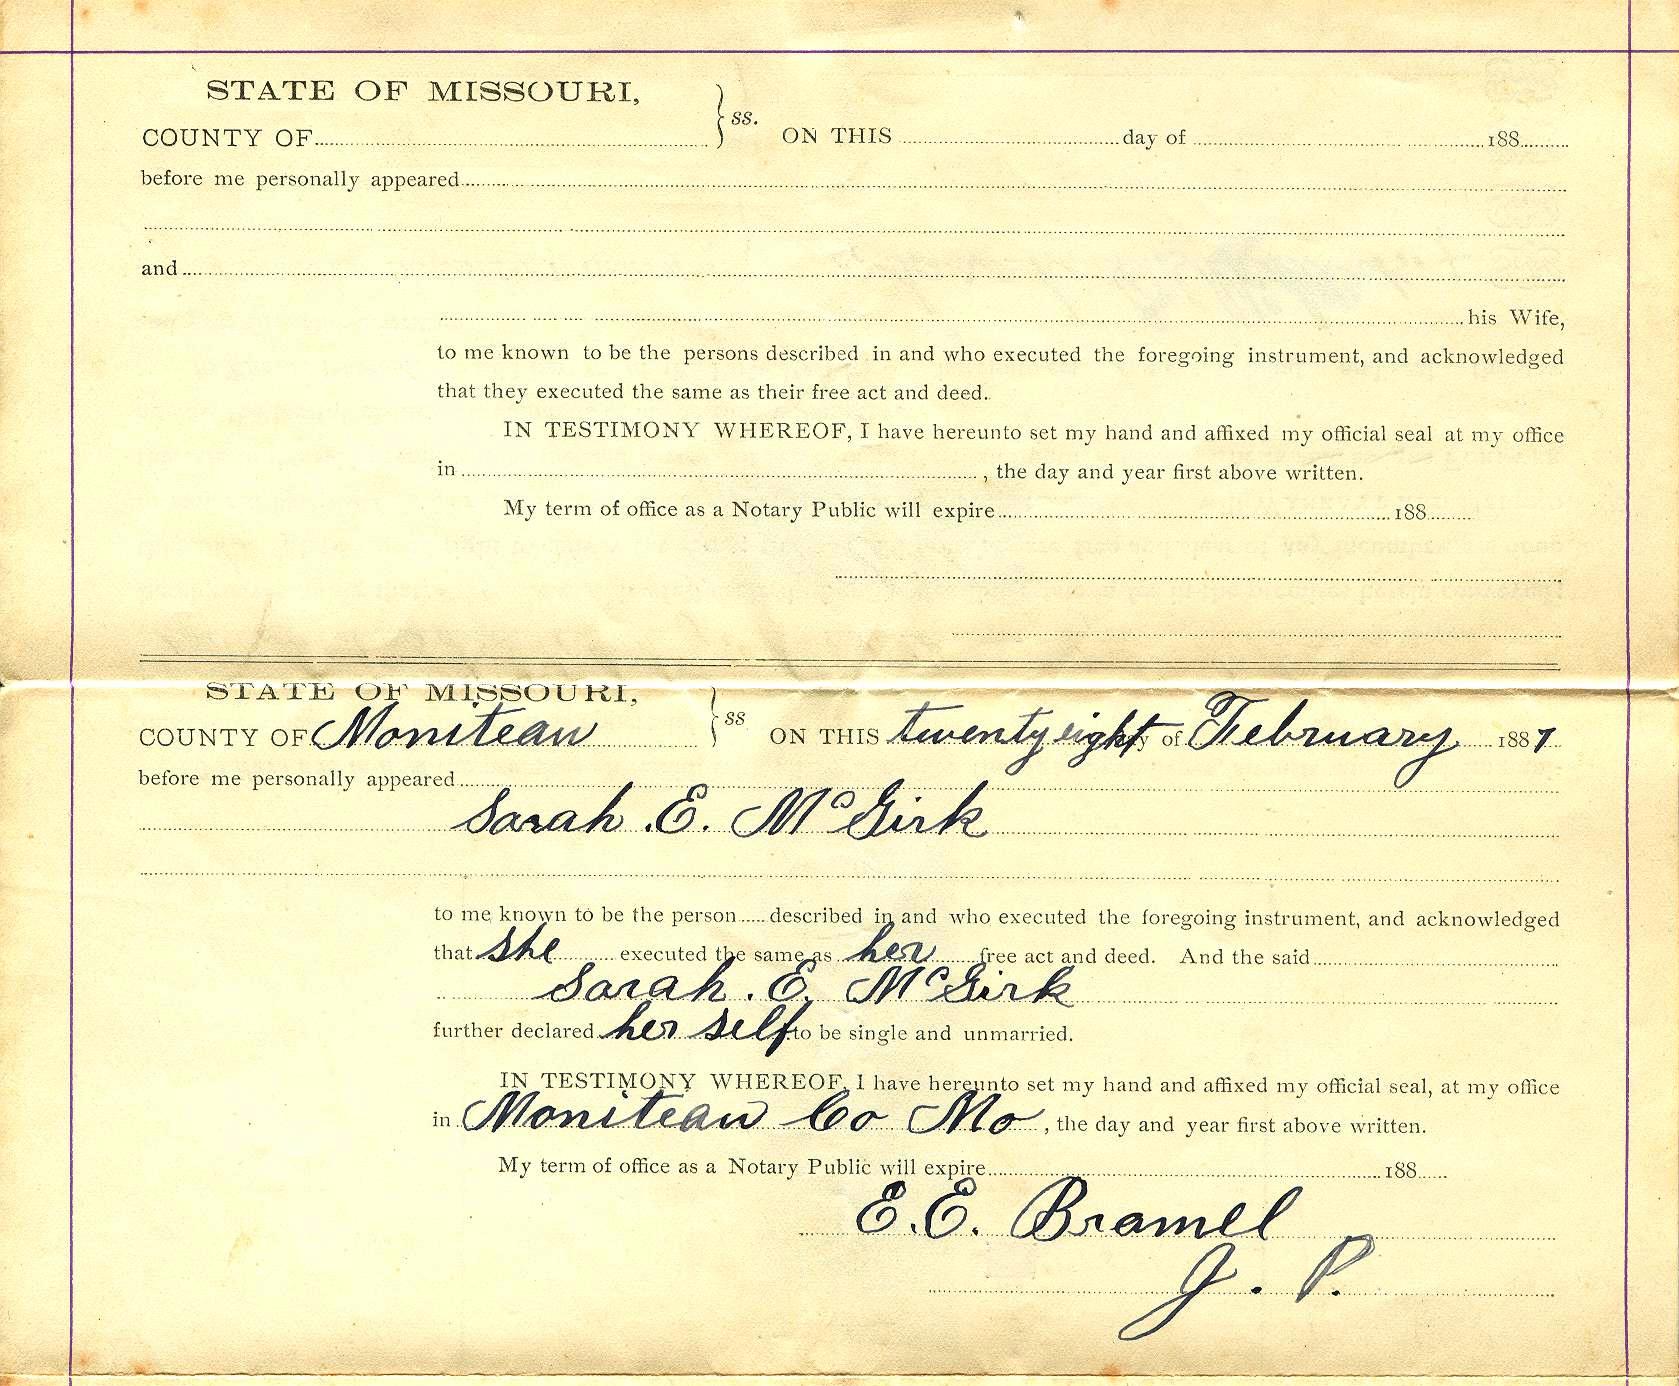 STATE OF MISSOURI,
COUNTY OF } ss. ON THIS day of 188
before me personally appeared
and
his Wife,
to me known to be the persons described in and who executed the foregoing instrument, and acknowledged
that they executed the same as their free act and deed.
IN TESTIMONY WHEREOF, I have hereunto set my hand and affixed my official seal at my office
in , the day and year first above written.
My term of office as a Notary Public will expire 188
STATE OF MISSOURI,
COUNTY OF Moniteau } ss ON THIS twenty eight of February 1887
before me personally appeared
Sarah. E. McGirk
to me known to be the person described in and who executed the foregoing instrument, and acknowledged
that she executed the same as her free act and deed. And the said
Sarah. E. McGirk
further declared her self to be single and unmarried.
IN TESTIMONY WHEREOF, I have hereunto set my hand and affixed my official seal, at my office
in Moniteau Co Mo , the day and year first above written.
My term of office as a Notary Public will expire 188
E. E. Bramel
J. P.